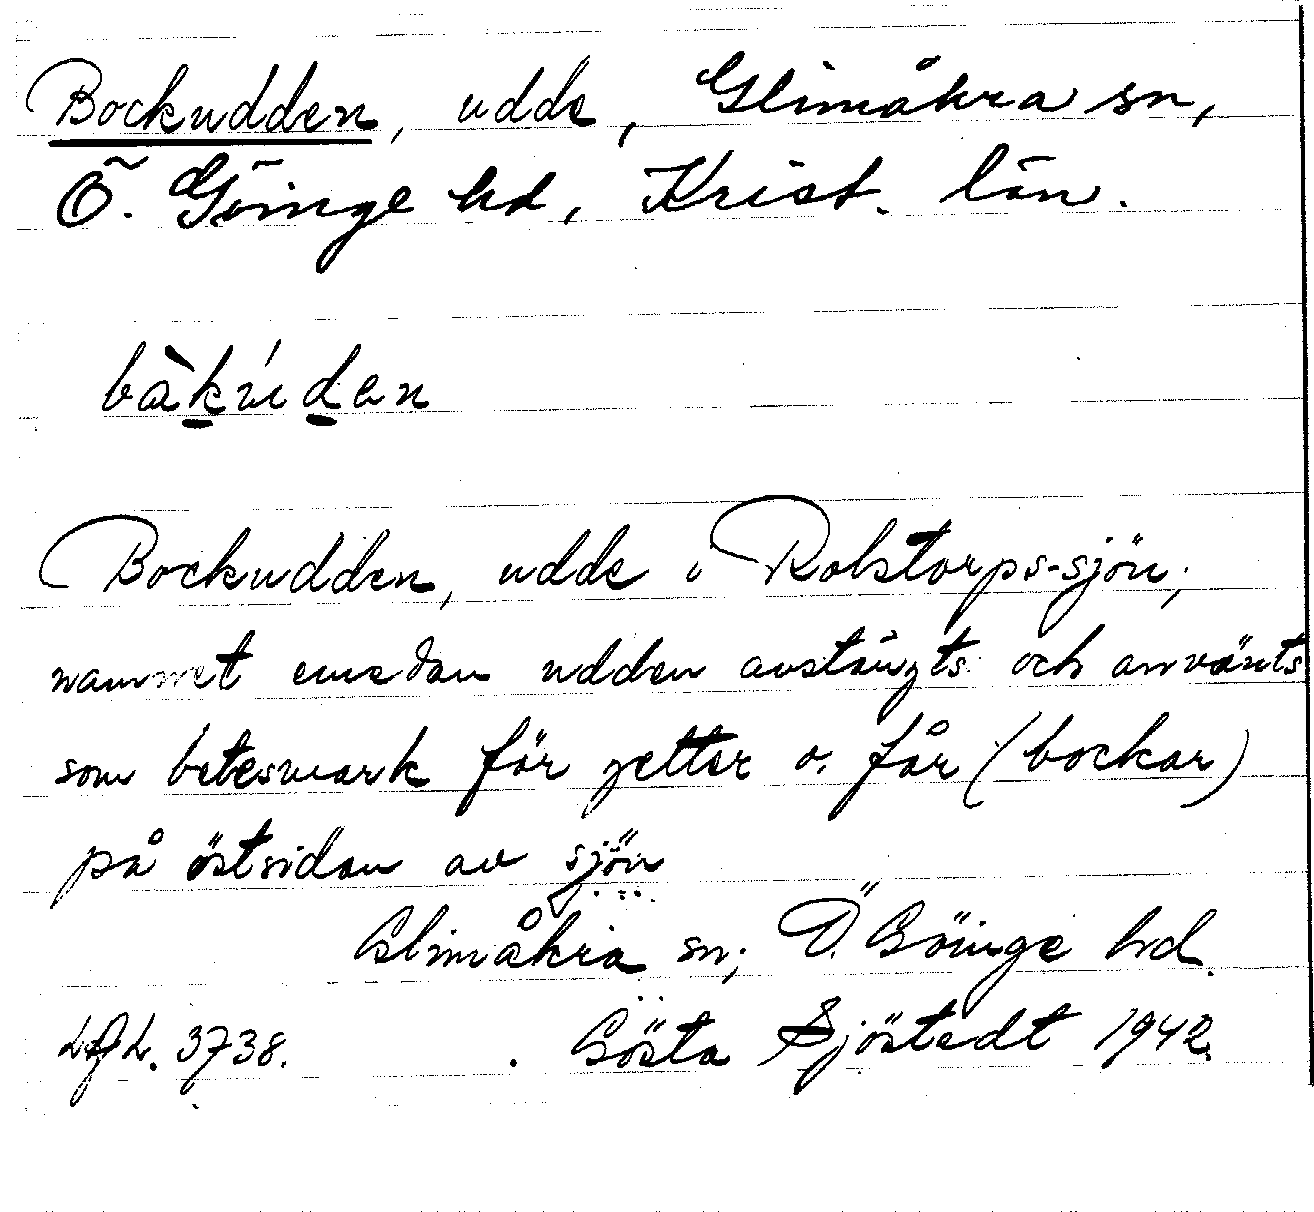 Bockudden, udde, Glimåkra sn,
Ö. Göinge hd, Krist. län.
bàkúden
Bockudden, udde i Rolstorps-sjön;
namnet emedan udden avstängts och använts
som betesmark för getter o. får (bockar)
på östsidan av sjön
Glimåkra sn; Ö. Göinge hd.
3738. Gösta Sjöstedt 1942.